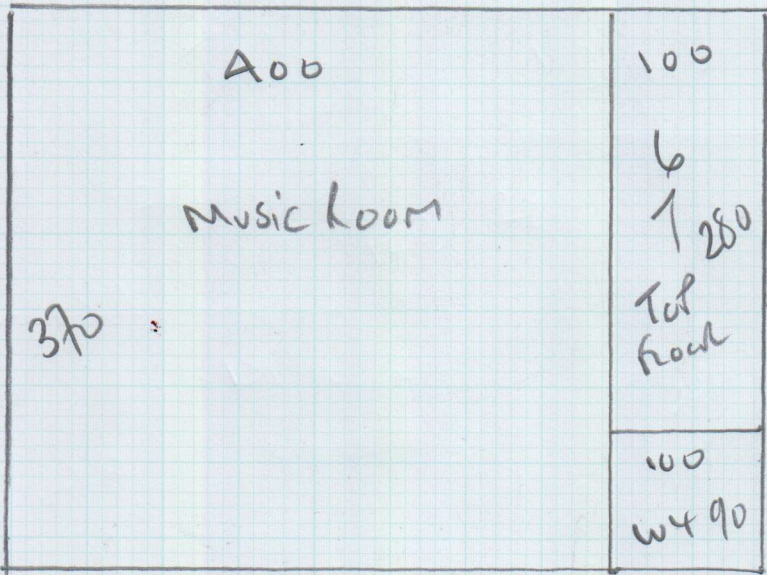 400
Music Room
370
100
6
↑
280
Top
Floor
100
W4 90